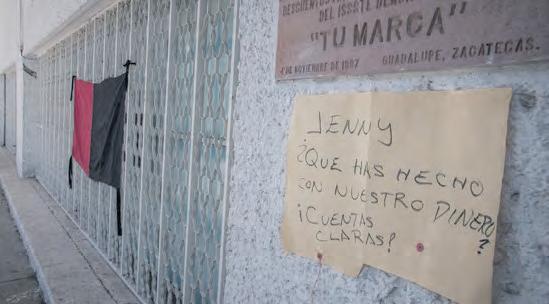 DESCUENTOS
DEL ISSSTE
"TU MARCA"
4 DE NOVIEMBRE DE 1997 GUADALUPE, ZACATECAS.
JENNY
¿QUE HAS HECHO
CON NUESTRO DINERO
?
¡CUENTAS
CLARAS!